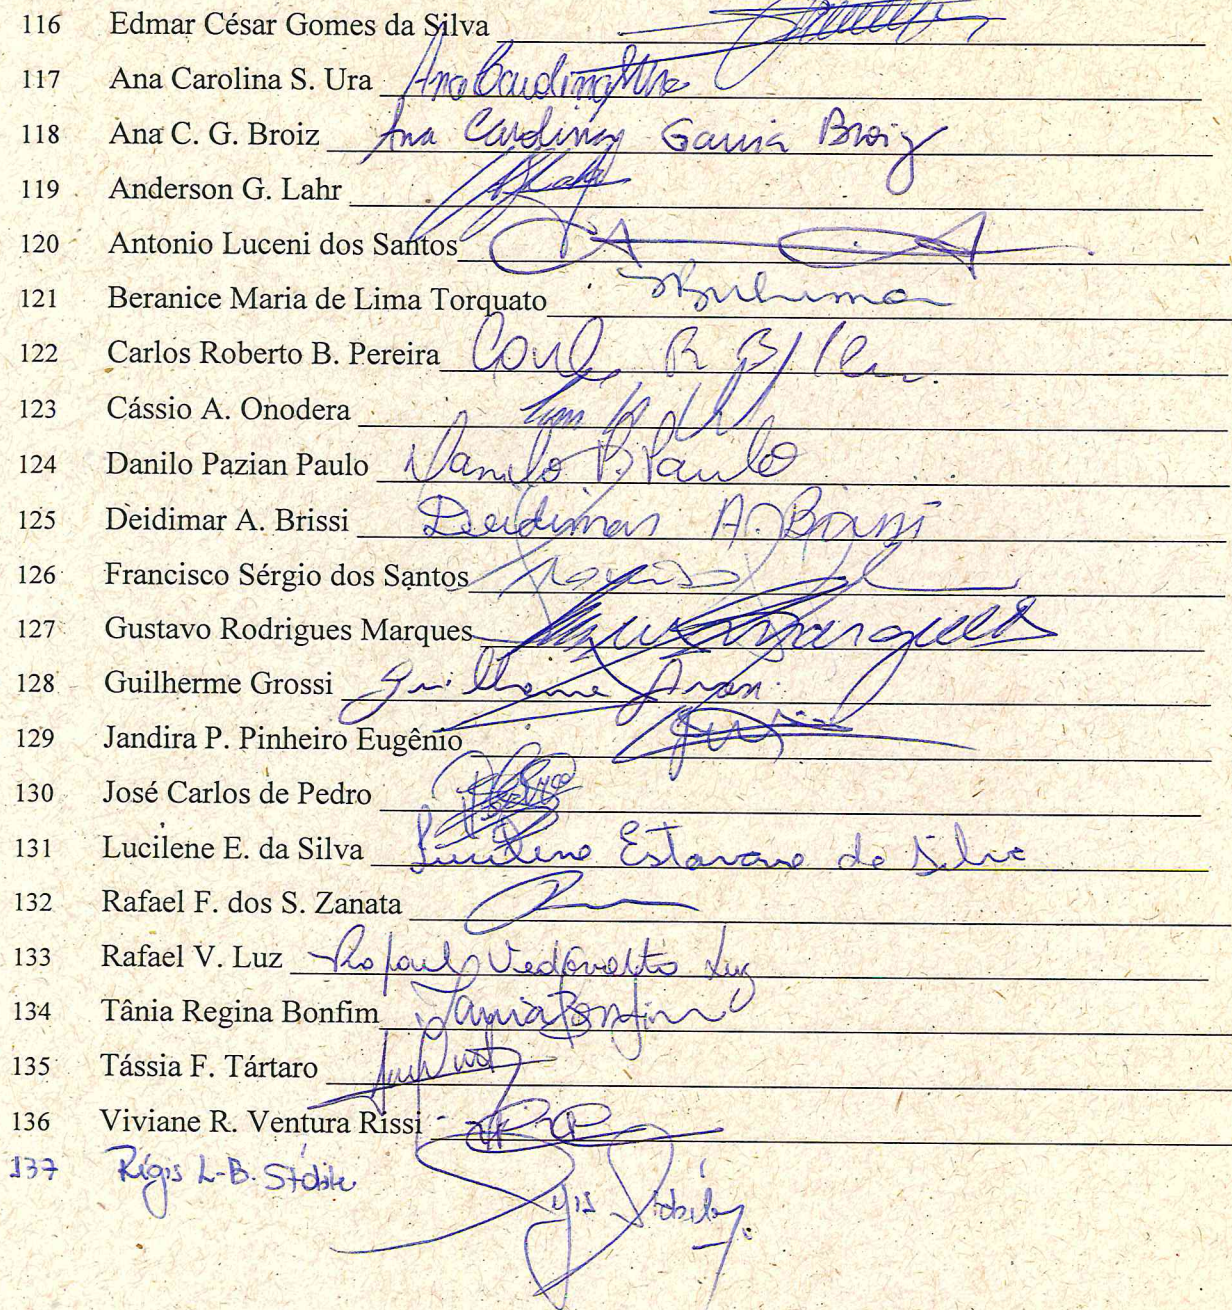 116 Edmar César Gomes da Silva
117 Ana Carolina S. Ura Ana Carolina Ura
118 Ana C. G. Broiz Ana Carolina Garcia Broiz
119 Anderson G. Lahr
120 Antonio Luceni dos Santos
121 Beranice Maria de Lima Torquato
122 Carlos Roberto B. Pereira
123 Cássio A. Onodera
124 Danilo Pazian Paulo Danilo P. Paulo
125 Deidimar A. Brissi Deidimar A. Brissi
126 Francisco Sérgio dos Santos
127 Gustavo Rodrigues Marques
128 Guilherme Grossi Guilherme
129 Jandira P. Pinheiro Eugênio
130 José Carlos de Pedro
131 Lucilene E. da Silva Lucilene da Silva
132 Rafael F. dos S. Zanata
133 Rafael V. Luz Rafael Luz
134 Tânia Regina Bonfim Tania Bonfim
135 Tássia F. Tártaro
136 Viviane R. Ventura Rissi
137 Régis L.B. Stábile Régis Stábile